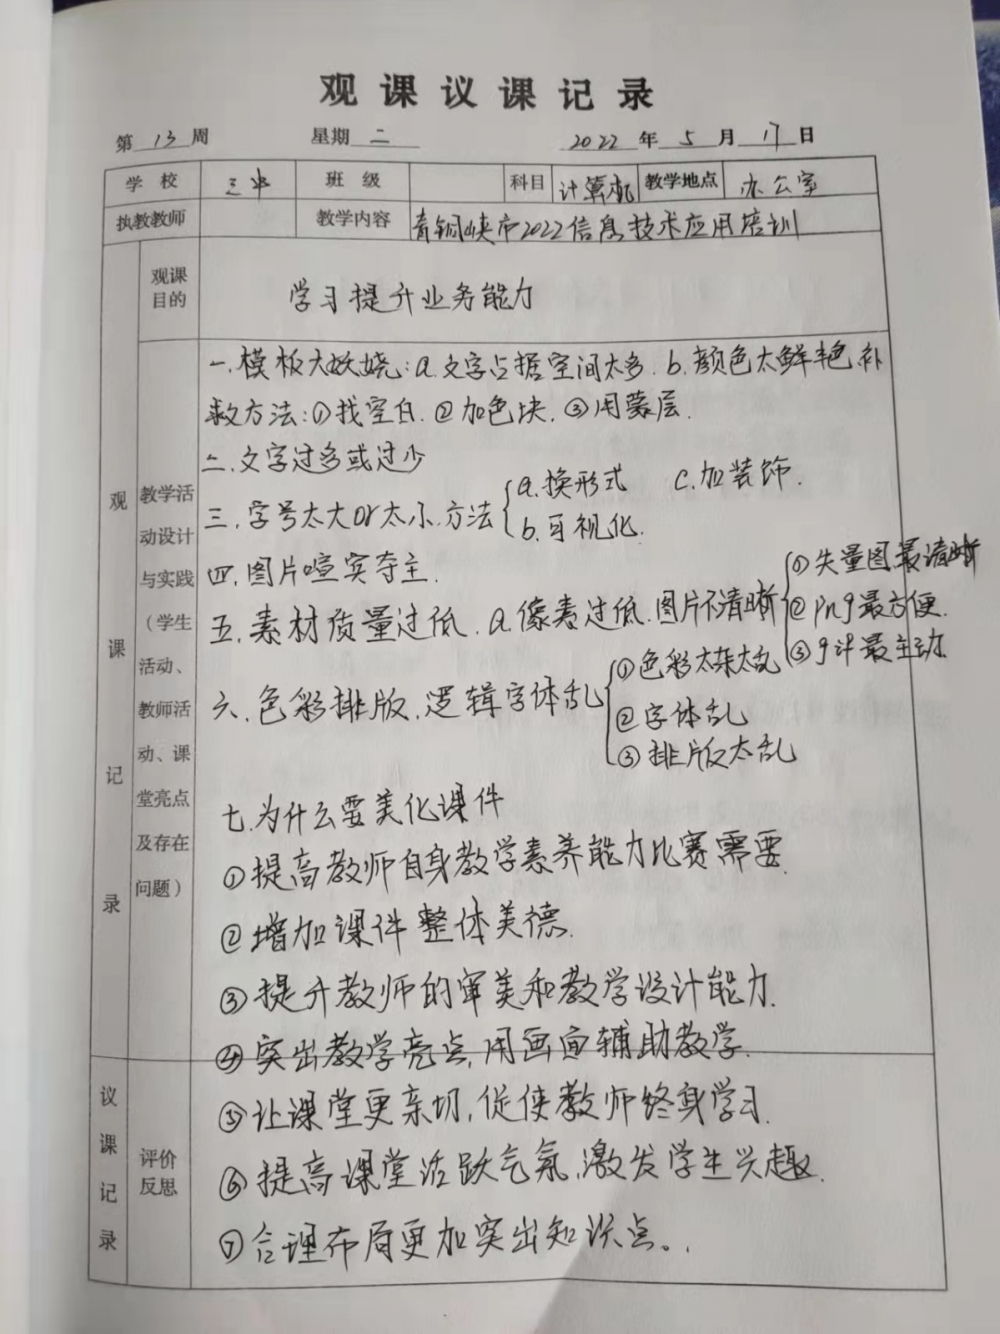 观课议课记录
第 13 周 星期 二 2022 年 5 月 17 日
学校 三中 班级 科目 计算机 教学地点 办公室
执教教师 教学内容 青铜峡市2022信息技术应用培训
观课目的 学习提升业务能力
观课记录
教学活动设计与实践（学生活动、教师活动、课堂亮点及存在问题）
一.模板太妖娆:a.文字占据空间太多.b.颜色太鲜艳 补
救方法:①找空白.②加色块.③用蒙层.
二.文字过多或过少
三.字号太大or太小.方法 a.换形式 c.加装饰.
b.可视化.
四.图片喧宾夺主.
五.素材质量过低.a.像素过低.图片不清晰 ①矢量图最清晰
②png最方便.
③gif最生动.
六.色彩排版.逻辑字体乱 ①色彩太杂太乱
②字体乱
③排版太乱
七.为什么要美化课件
①提高教师自身教学素养能力比赛需要.
②增加课件整体美德.
③提升教师的审美和教学设计能力.
④突出教学亮点,用画面辅助教学.
议课记录
评价反思
⑤让课堂更亲切,促使教师终身学习.
⑥提高课堂活跃气氛,激发学生兴趣.
⑦合理布局更加突出知识点。.